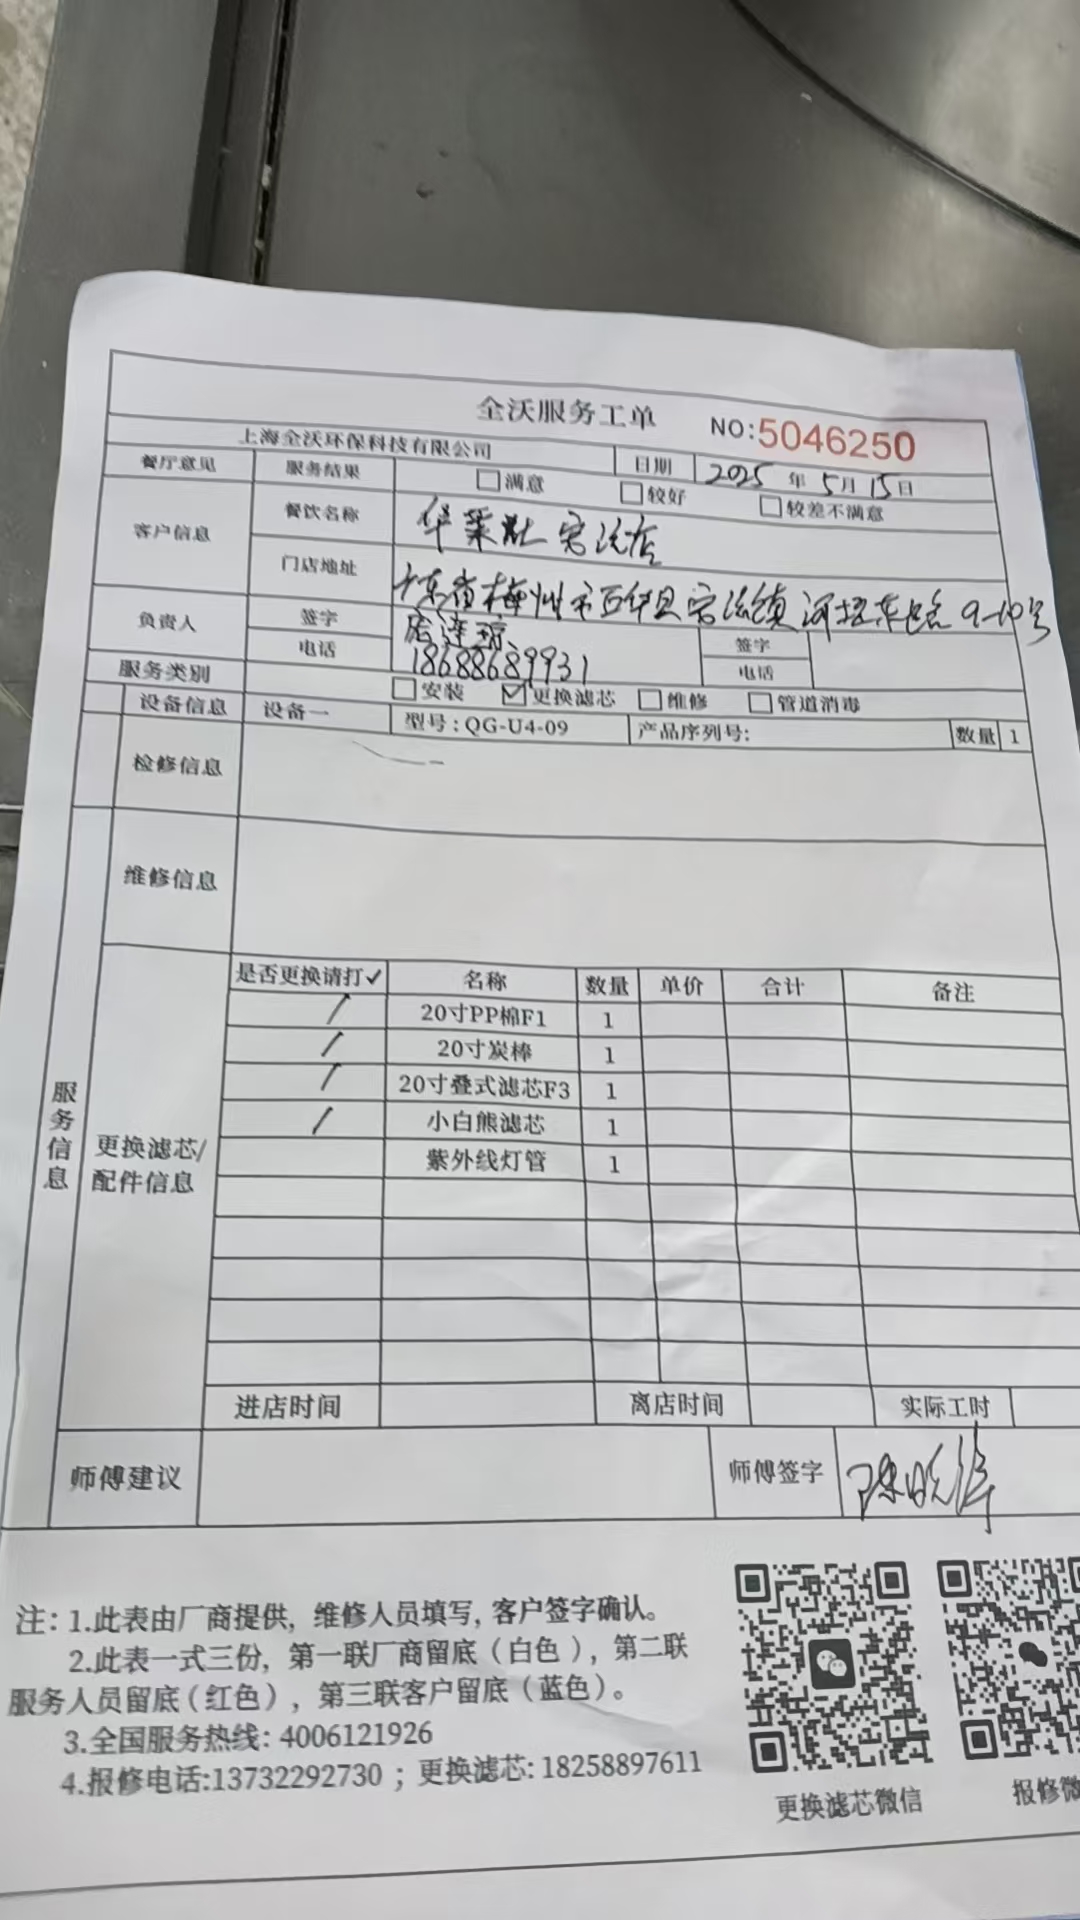 全沃服务工单 NO:5046250
上海全沃环保科技有限公司 日期 2025年5月15日
餐厅意见 服务结果 满意 较好 较差不满意
客户信息 餐饮名称 华莱士安流店
门店地址 广东省梅州市五华县安流镇河堤东路9-10号
负责人 签字 签字
电话 18688689931 电话
服务类别 安装 ✓更换滤芯 维修 管道消毒
设备信息 设备一 型号:QG-U4-09 产品序列号: 数量 1
检修信息
维修信息
服务信息
更换滤芯/配件信息
是否更换请打✓ 名称 数量 单价 合计 备注
20寸PP棉F1 1
20寸炭棒 1
20寸叠式滤芯F3 1
小白熊滤芯 1
紫外线灯管 1
进店时间 离店时间 实际工时
师傅建议 师傅签字
注: 1.此表由厂商提供, 维修人员填写, 客户签字确认。
2.此表一式三份, 第一联厂商留底(白色), 第二联
服务人员留底(红色), 第三联客户留底(蓝色)。
3.全国服务热线: 4006121926
4.报修电话:13732292730 ; 更换滤芯: 18258897611
更换滤芯微信 报修微